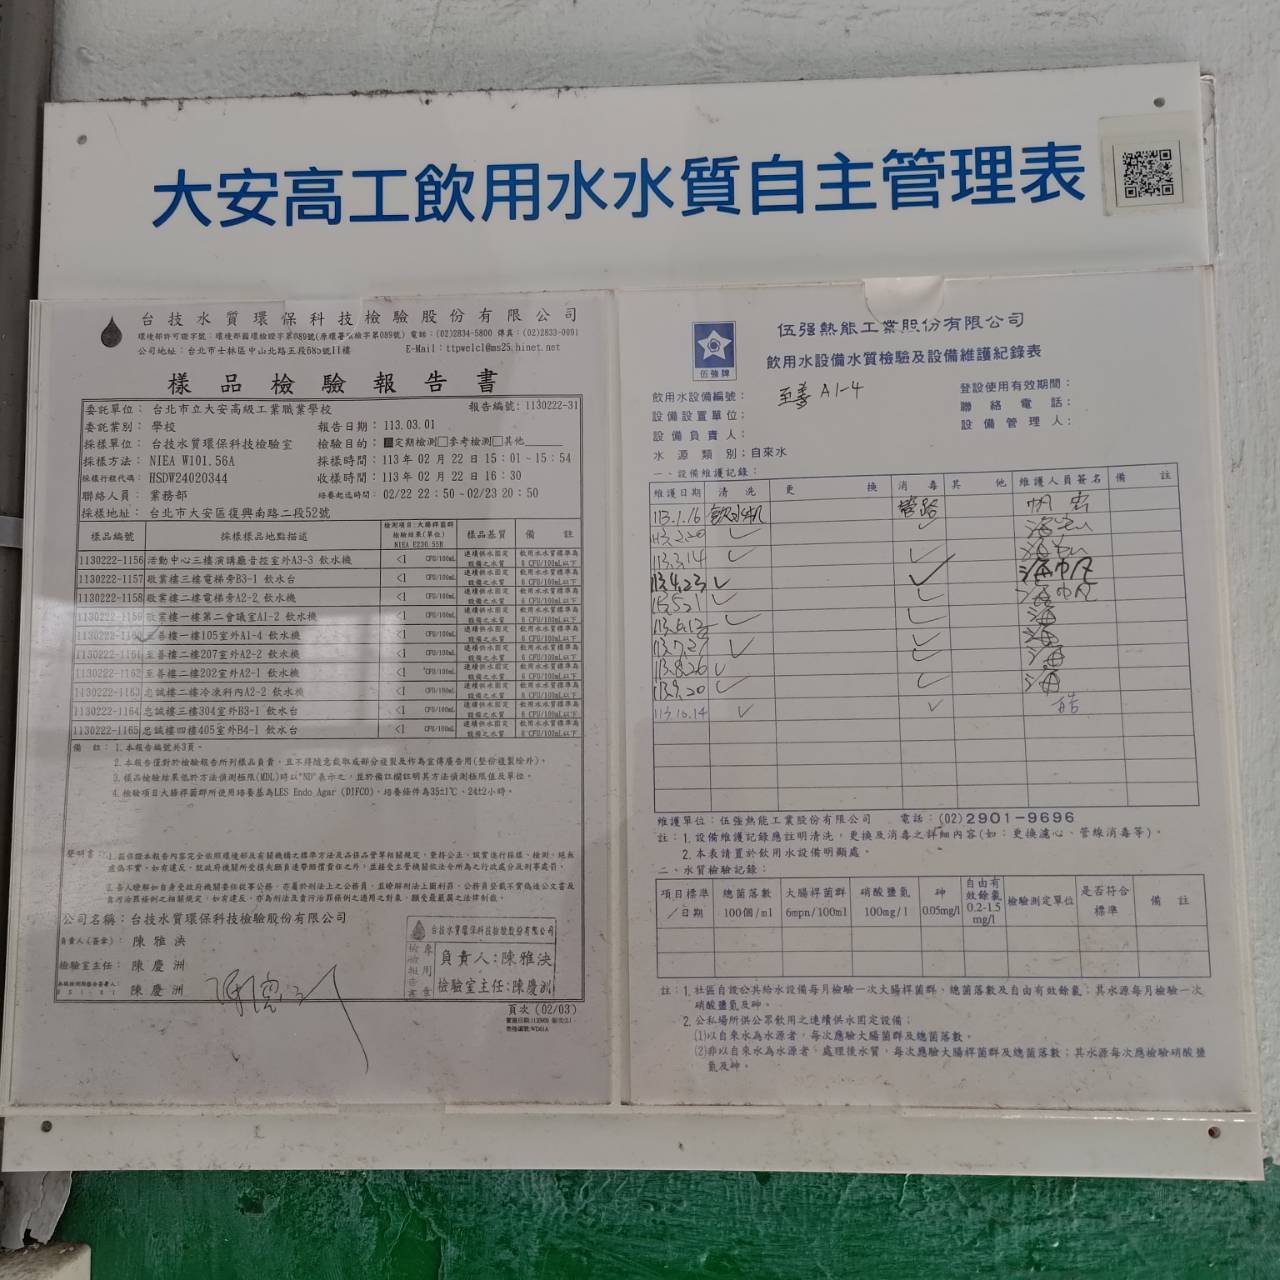 大安高工飲用水水質自主管理表
台技水質環保科技檢驗股份有限公司
公司地址：台北市士林區中山北路五段685號11樓 E-Mail：ttpwelcl@ms25.hinet.net
樣品檢驗報告書
委託單位：台北市立大安高級工業職業學校 報告編號：1130222-31
委託業別：學校 報告日期：113.03.01
採樣單位：台技水質環保科技檢驗室 檢驗目的：■定期檢測□參考檢測□其他
採樣方法：NIEA W101.56A 採樣時間：113年02月22日15:01~15:54
採樣行程代碼：HSDW24020344 收樣時間：113年02月22日16:30
聯絡人員：業務部 培養起迄時間：02/22 22:50~02/23 20:50
採樣地址：台北市大安區復興南路二段52號
樣品編號 採樣樣品地點描述 檢測項目:大腸桿菌群 檢驗結果(單位) NIEA E230.55B 樣品基質 備註
1130222-1156 活動中心三樓演講廳音控室外A3-3 飲水機 <1 CFU/100mL 連續供水固定設備之水質 飲用水水質標準為6 CFU/100mL以下
1130222-1157 敬業樓三樓電梯旁B3-1 飲水台 <1 CFU/100mL 連續供水固定設備之水質 飲用水水質標準為6 CFU/100mL以下
1130222-1158 敬業樓二樓電梯旁A2-2 飲水機 <1 CFU/100mL 連續供水固定設備之水質 飲用水水質標準為6 CFU/100mL以下
1130222-1159 敬業樓一樓第二會議室A1-2 飲水機 <1 CFU/100mL 連續供水固定設備之水質 飲用水水質標準為6 CFU/100mL以下
1130222-1160 至善樓一樓105室外A1-4 飲水機 <1 CFU/100mL 連續供水固定設備之水質 飲用水水質標準為6 CFU/100mL以下
1130222-1161 至善樓二樓207室外A2-2 飲水機 <1 CFU/100mL 連續供水固定設備之水質 飲用水水質標準為6 CFU/100mL以下
1130222-1162 至善樓二樓202室外A2-1 飲水機 <1 CFU/100mL 連續供水固定設備之水質 飲用水水質標準為6 CFU/100mL以下
1130222-1163 忠誠樓二樓冷凍科內A2-2 飲水機 <1 CFU/100mL 連續供水固定設備之水質 飲用水水質標準為6 CFU/100mL以下
1130222-1164 忠誠樓三樓304室外B3-1 飲水台 <1 CFU/100mL 連續供水固定設備之水質 飲用水水質標準為6 CFU/100mL以下
1130222-1165 忠誠樓四樓405室外B4-1 飲水台 <1 CFU/100mL 連續供水固定設備之水質 飲用水水質標準為6 CFU/100mL以下
備註：1.本報告編號共3頁。
2.本報告僅對於檢驗報告所列樣品負責，且不得隨意截取或部分複製及作為宣傳廣告用(整份複製除外)。
3.樣品檢驗結果低於方法偵測極限(MDL)時以"ND"表示之，並於備註欄註明其方法偵測極限值及單位。
4.檢驗項目大腸桿菌群所使用培養基為LES Endo Agar (DIFCO)，培養條件為35±1℃、24±2小時。
公司名稱：台技水質環保科技檢驗股份有限公司
負責人(簽章)：陳雅泱
檢驗室主任：陳慶洲
陳慶洲
台技水質環保科技檢驗股份有限公司
檢驗報告書專用章
負責人：陳雅泱
檢驗室主任：陳慶洲
頁次(02/03)
伍強牌
伍强熱能工業股份有限公司
飲用水設備水質檢驗及設備維護紀錄表
飲用水設備編號：至善 A1-4 登設使用有效期間：
設備設置單位： 聯絡電話：
設備負責人： 設備管理人：
水源類別：自來水
一、設備維護記錄：
維護日期 清洗 更換 消毒 其他 維護人員簽名 備註
113.1.16 飲水机 管路
113.2.20 ✓ ✓
113.3.14 ✓ ✓
113.4.23 ✓ ✓
113.5.21 ✓ ✓
113.6.13 ✓ ✓
113.7.27 ✓ ✓
113.8.26 ✓ ✓
113.9.20 ✓ ✓
113.10.14 ✓ ✓
維護單位：伍强熱能工業股份有限公司 電話：(02)2901-9696
註：1.設備維護記錄應註明清洗，更換及消毒之詳細內容(如：更換濾心、管線消毒等)。
2.本表請置於飲用水設備明顯處。
二、水質檢驗記錄：
項目標準／日期 總菌落數100個/ml 大腸桿菌群6mpn/100ml 硝酸鹽氮100mg/l 砷0.05mg/l 自由有效餘氯0.2-1.5mg/l 檢驗測定單位 是否符合標準 備註
註：1.社區自設公共給水設備每月檢驗一次大腸桿菌群、總菌落數及自由有效餘氯；其水源每月檢驗一次硝酸鹽氮及砷。
2.公私場所供公眾飲用之連續供水固定設備：
(1)以自來水為水源者，每次應驗大腸菌群及總菌落數。
(2)非以自來水為水源者，處理後水質，每次應驗大腸桿菌群及總菌落數；其水源每次應檢驗硝酸鹽氮及砷。